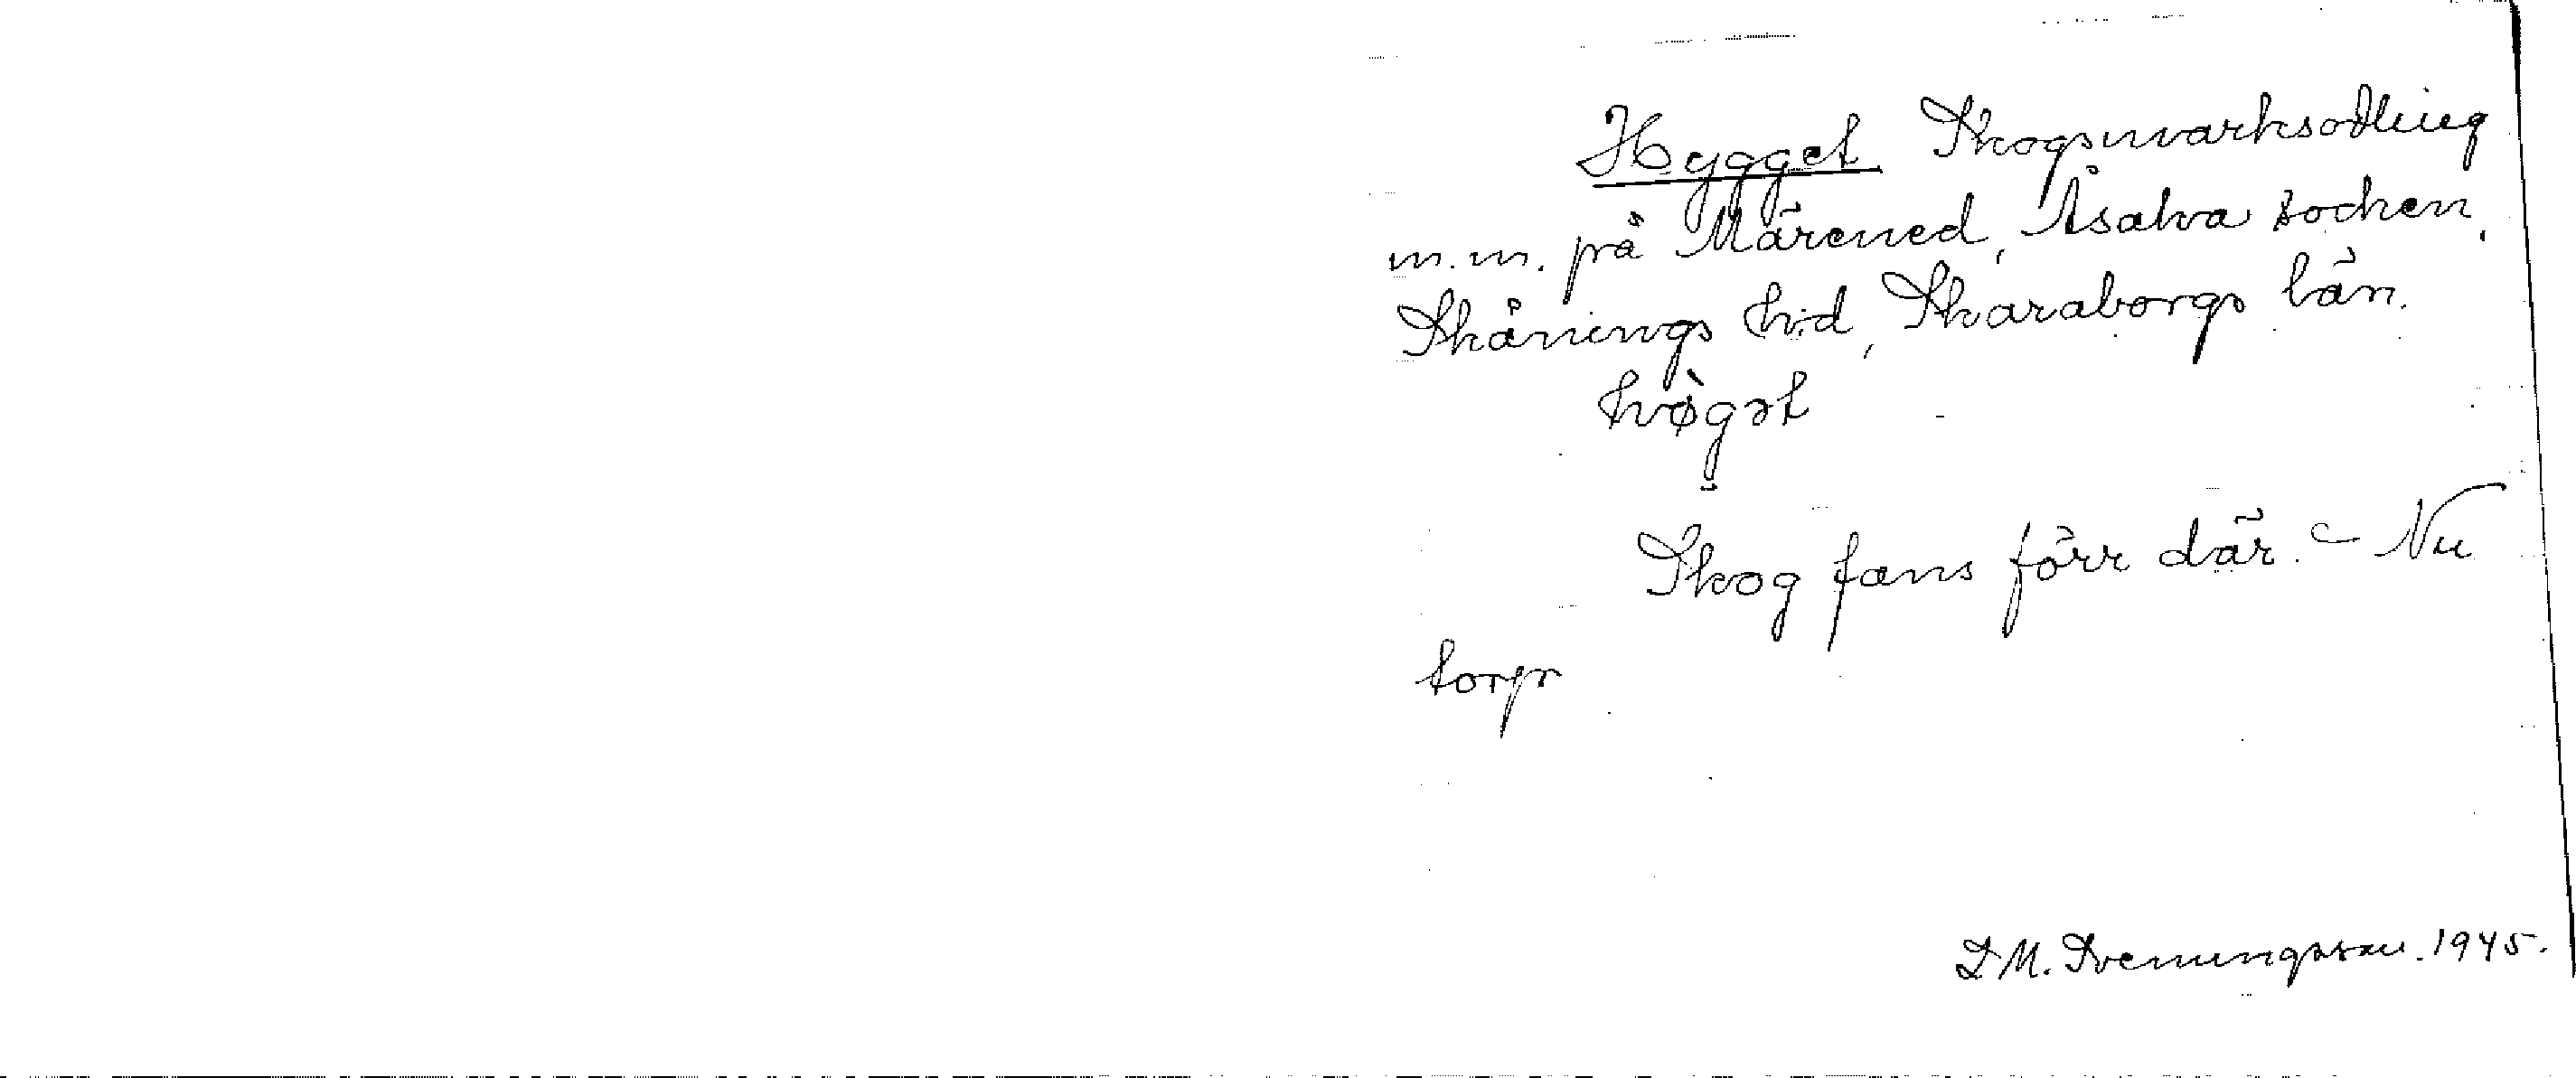 Hygget Skogsmarksodling
m.m. på Mårened, Åsaka socken,
Skånings hd, Skaraborgs län.
hø̀gət
Skog fans förr där. – Nu
torp
D M. Svenungsson. 1945.